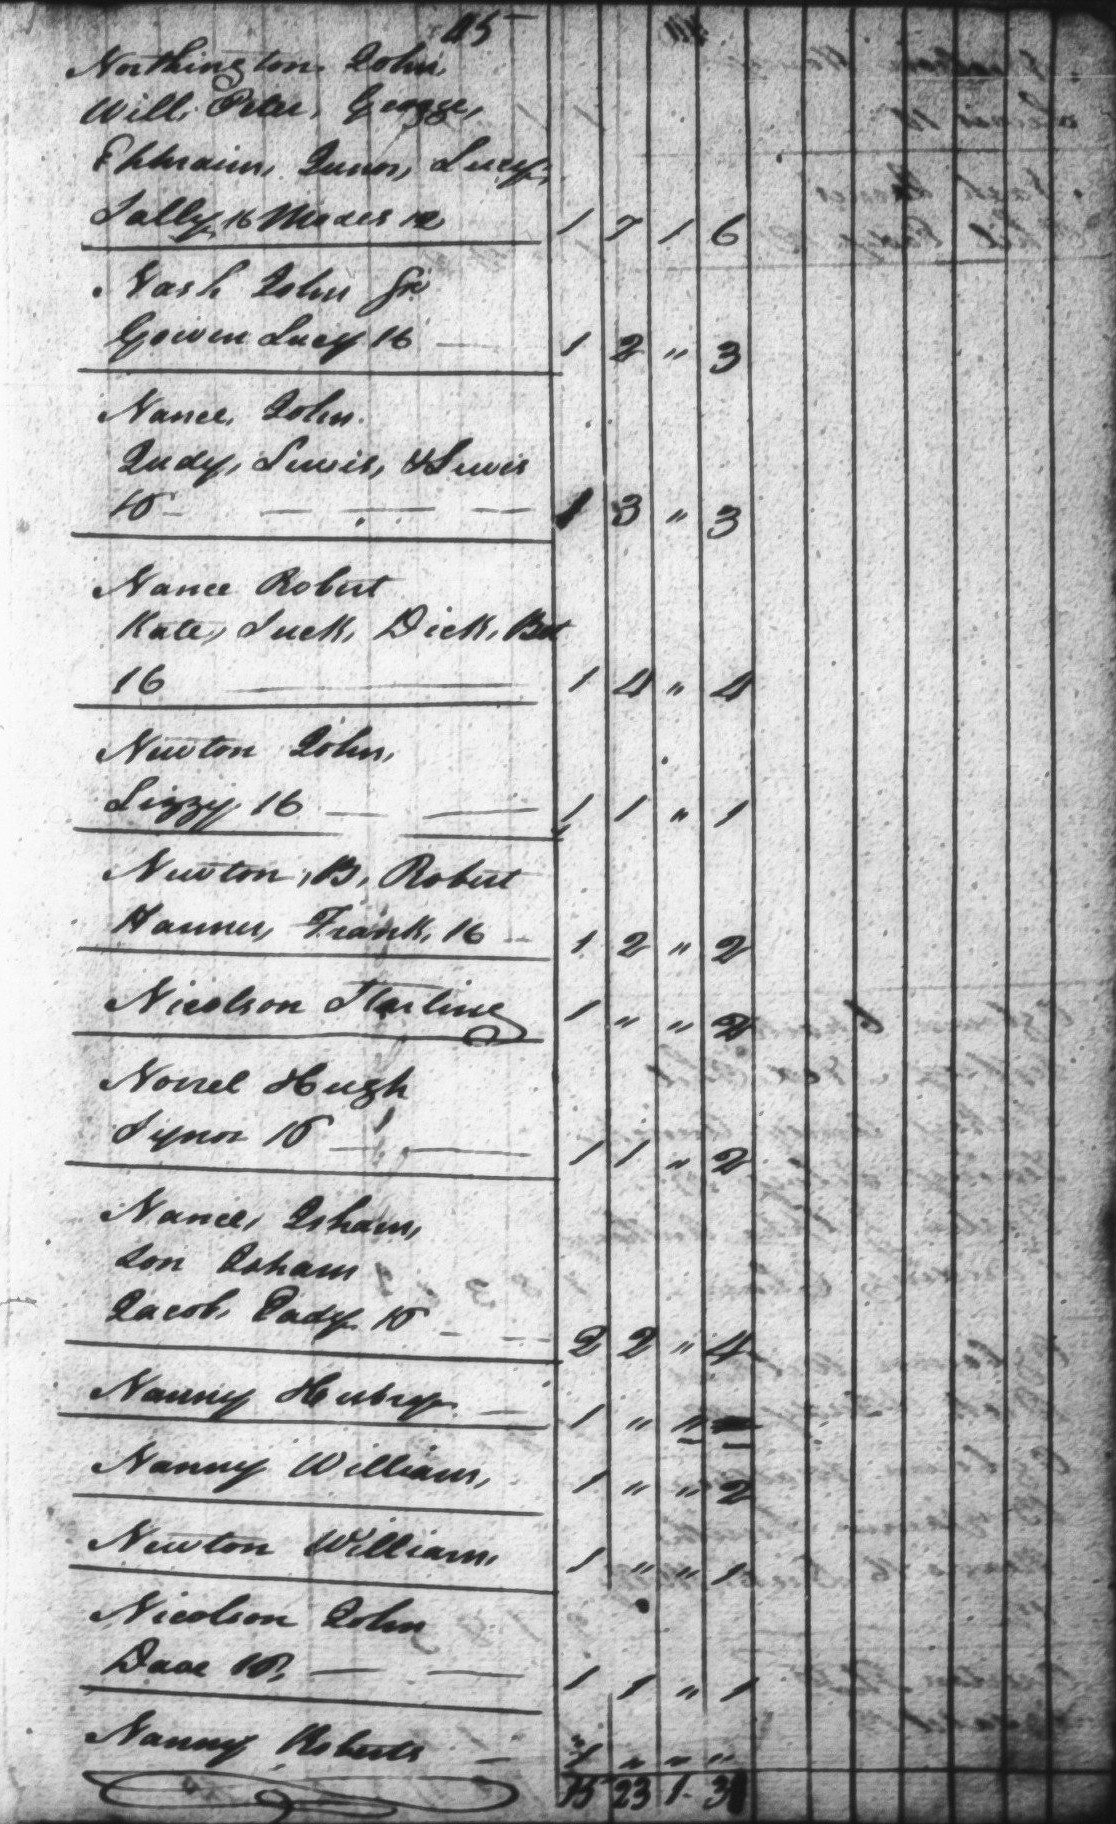 Northington John,
Will, Peter, George,
Ephraim, Junor, Lucy,
Sally, 16 Moses 12 1 7 1 6
Nash John Jr
Gowen Lucy 16 1 2 " 3
Nance, John
Judy, Lewis, & Lewis
16 1 3 " 3
Nance Robert
Kate, Suck, Dick, Bet
16 1 4 " 4
Newton John,
Lizzy 16 1 1 " 1
Newton, B, Robert
Hanner, Frank, 16 1 2 " 2
Nicolson Starling 1 " " 2
Norrel Hugh
Synor 16 1 1 " 2
Nance, Isham,
son Isham
Jacob, Eady 16 2 2 " 4
Nanny 1 " "
Nanny William, 1 " " 2
Newton William, 1 " " 1
Nicolson John
Dave 16, 1 1 " 1
Nanny Roberts 1 " " "
15 23 1